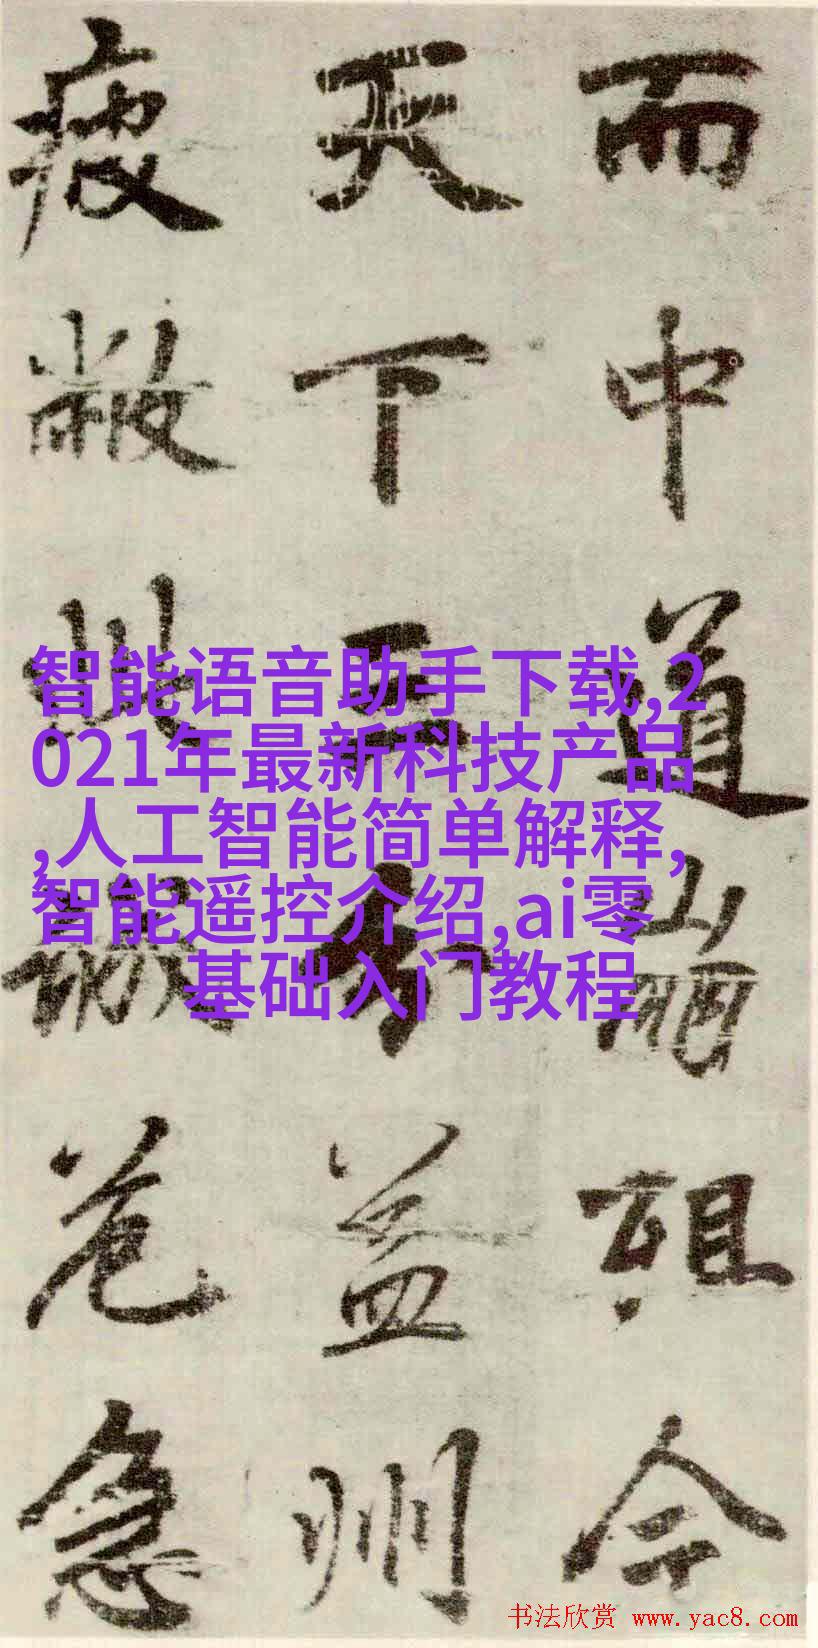 而中道崩殂今
天下三分益州
疲敝此誠危急
智能语音助手下载,2
021年最新科技产品
,人工智能简单解释,
智能遥控介绍,ai零
基础入门教程
书法欣赏 www.yac8.com